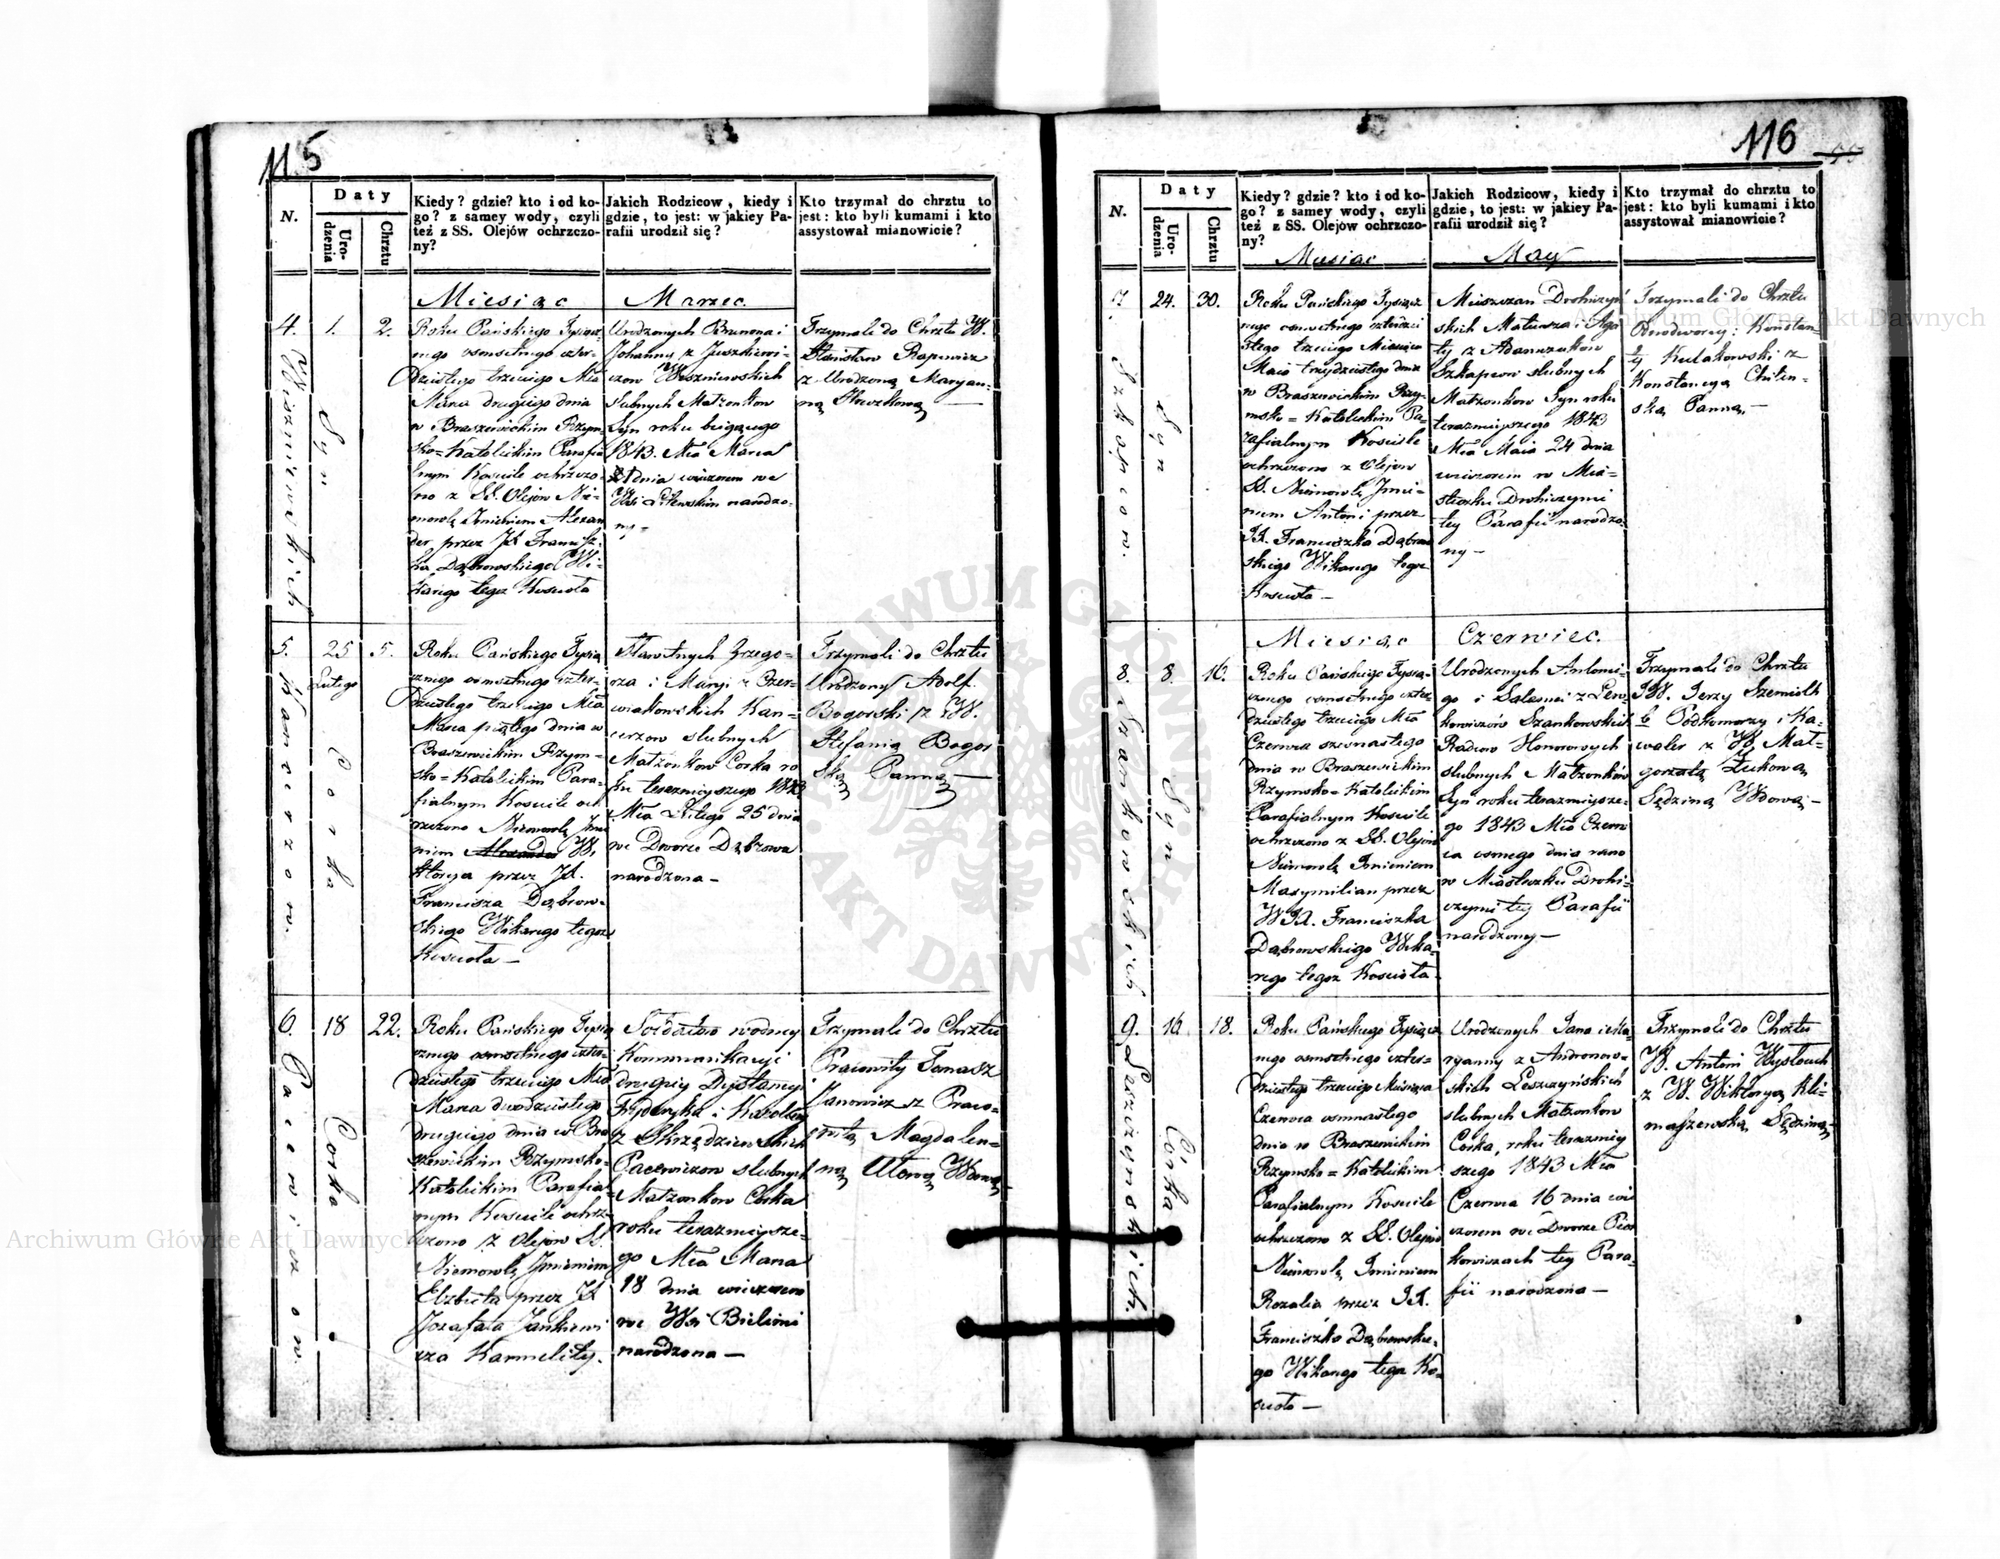 115
N.
Daty
Urodzenia
Chrztu
Kiedy? gdzie? kto i od ko-
go? z samey wody, czyli
też z SS. Olejów ochrzczo-
ny?
Jakich Rodzicow, kiedy i
gdzie, to jest: w jakiey Pa-
rafii urodził się?
Kto trzymał do chrztu to
jest: kto byli kumami i kto
assystował mianowicie?
Miesiąc Marzec.
4.
Wiszniewskich
1.
Syn
2.
Roku Pańskiego Tysiącz
nego osmsetnego czter-
Dziestego trzeciego Mca
Marca drugiego dnia
w Braszewickim Rzym-
sko=Katolickim Parafia
lnym Kosciele ochrzczo-
no z SS. Olejow Nie-
mowlę Imieniem Alexan
der przez JX Francisz-
ka Dąbrowskiego Wi-
karego tegoż Kosciola
Urodzonych Brunona i
Johanny z Juszkiewi-
czow Wiszniewskich
slubnych Małżonkow
Syn roku bieżącego
1843. Mca Marca
1 dnia wieczorem we
Wsi narodzo-
ny=
Trzymali do Chrztu W.
Stanisław Rapewicz
z Urodzoną Maryan-
ną
5.
Kancierzow.
25
Lutego
Corka
5.
Roku Pańskiego Tysią
cznego osmsetnego czter-
Dziestego trzeciego Mca
Marca piątego dnia w
Braszewickim Rzym-
sko=Katolickim Para-
fialnym Kosciele och
rzczono Niemowlę Imie
niem Alexander Wi
ktorya przez JX.
Francisza Dąbrow-
skiego Wikarego tegoż
Kosciola—
Sławetnych Grzego-
rza i Maryi z Czer-
wiakowskich Kan-
cierzow slubnych
Małżonkow Corka ro
ku terazniejszego 1843
Mca Lutego 25 dnia
we Dworze Dąbrowa
narodzona—
Trzymali do Chrztu
Urodzony Adolf
Bogorski z W.
Stefanią Bogor
ską Panną—
6.
Pacewiczow.
18
Corka
22.
Roku Pańskiego Tysią
cznego osmsetnego czter-
dziestego trzeciego Mca
Marca dwódziestego
drugiego dnia w Bra
szewickim Rzymsko-
Katolickim Parafial-
nym Kosciele ochrz-
czono z Olejow SS.
Niemowlę Imieniem
Elzbieta przez JX
Jozafata Jankiewi
cza Karmelity.
Sołdatow wodney
Kommunikacyi
drugiey Dystancyi
Fryderyka i Karoliny
z Skrzędziewskich
Pacewiczow slubnych
Małżonkow Corka
roku terazniejsze-
go Mca Marca
18 dnia wieczorem
we Wsi Bielinie
narodzona—
Trzymali do Chrztu
Pracowity Tomasz
Janowicz z Praco-
witą Magdalen-
ną Wdową—
116
N.
Daty
Urodzenia
Chrztu
Kiedy? gdzie? kto i od ko-
go? z samey wody, czyli
też z SS. Olejów ochrzczo-
ny?
Jakich Rodzicow, kiedy i
gdzie, to jest: w jakiey Pa-
rafii urodził się?
Kto trzymał do chrztu to
jest: kto byli kumami i kto
assystował mianowicie?
Miesiąc May
7.
Szkopiow.
24.
Syn
30.
Roku Pańskiego Tysiącz
nego osmsetnego czterdzie
stego trzeciego Miesiąca
Maia trzydziestego dnia
w Braszewickim Rzy-
msko=Katolickim Pa-
rafialnym Kosciele
ochrzczono z Olejow
SS. Niemowlę Imie-
niem Antoni przez
JX. Franciszka Dąbrow
skiego Wikarego tegoż
Kosciola—
Mieszczan Drohiczyń
skich Mateusza i Aga
ty z Adamczukow
Szkapiow slubnych
Małżonkow Syn roku
terazniejszego 1843
Mca Maia 24 dnia
wieczorem w Mia-
steczku Drohiczynie
tey Parafii narodzo-
ny—
Trzymali do Chrztu
Jednodworcy: Konstan
ty Kułakowski z
Konstancyą Chilin-
ską Panną.—
Miesiąc Czerwiec.
8.
Szankowskich
8.
Syn
16.
Roku Pańskiego Tysią-
cznego osmsetnego czter
dziestego trzeciego Mca
Czerwca szesnastego
dnia w Braszewickim
Rzymsko=Katolickim
Parafialnym Kosciele
ochrzczono z SS. Olejow
Niemowlę Imieniem
Maxymilian przez
WJX. Franciszka
Dąbrowskiego Wika-
rego tegoż Kosciola—
Urodzonych Antonie-
go i Salomei z Lew-
kowiczów Szankowskich
Radzcow Honorowych
slubnych Małżonków
Syn roku terazniejsze-
go 1843 Mca Czerw
ca osmego dnia rano
w Miasteczku Drohi-
czynie tey Parafii
narodzony—
Trzymali do Chrztu
JW. Jerzy Szemioth
b: Podkomorzy i Ka-
waler z W. Mał-
gorzatą Żukową
Sędziną Wdową—
9.
Leszczynskich.
16.
Córka
18.
Roku Pańskiego Tysiącz
nego osmsetnego czter-
dziestego trzeciego Miesiąca
Czerwca osmnastego
dnia w Braszewickim
Rzymsko=Katolickim
Parafialnym Kosciele
ochrzczono z SS. Olejow
Niemowlę Imieniem
Rozalia przez JX.
Franciszka Dąbrowskie-
go Wikarego tegoż Ko-
sciola—
Urodzonych Jana i Ma
ryanny z Andronow-
skich Leszczyńskich
slubnych Małżonkow
Corka, roku terazniey
szego 1843 Mca
Czerwca 16 dnia wie
czorem we Dworze Piór
kowiczach tey Para-
fii narodzona—
Trzymali do Chrztu
W. Antoni Wysłouch
z W. Wiktoryą Kli-
maszewską Sędziną—
Archiwum Główne Akt Dawnych
Archiwum Główne Akt Dawnych
ARCHIWUM GŁÓWNE AKT DAWNYCH